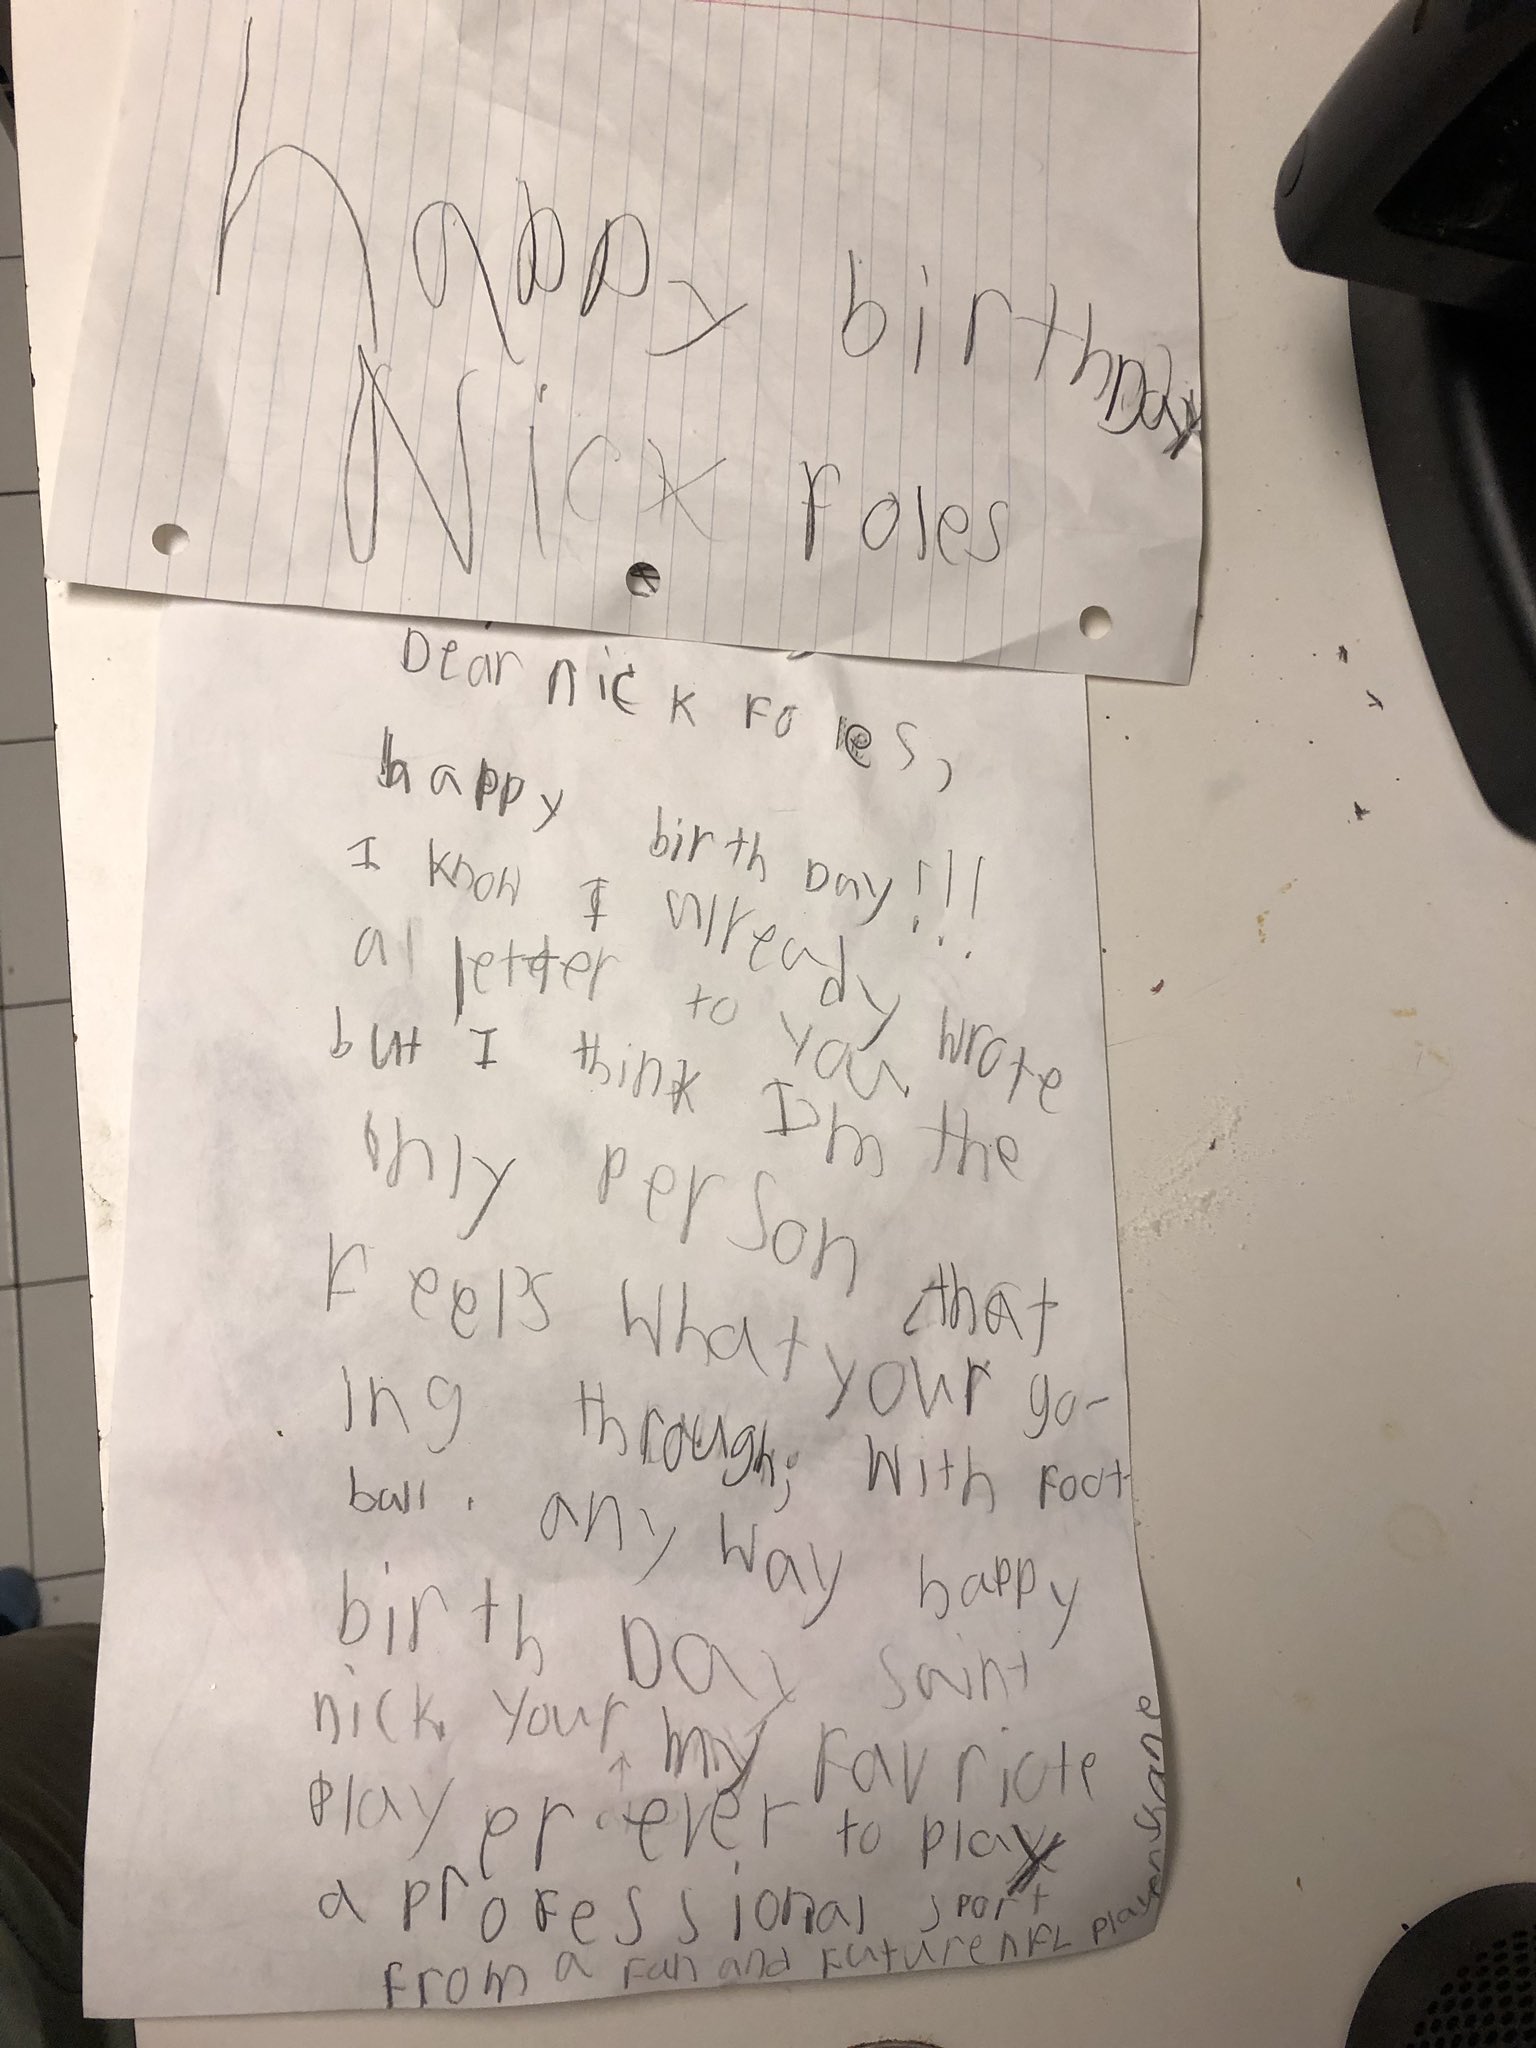 happy birthDay
Nick Foles
Dear nick Foles,
happy birth Day!!!
I know I already wrote
a letter to you
but I think I'm the
only person that
Feel's what your go-
ing through; With Foot
ball. any way happy
birth Day Saint
nick. your my Favriote
play er ever to play
a professional sport
From a Fan and Future nFL player Shane